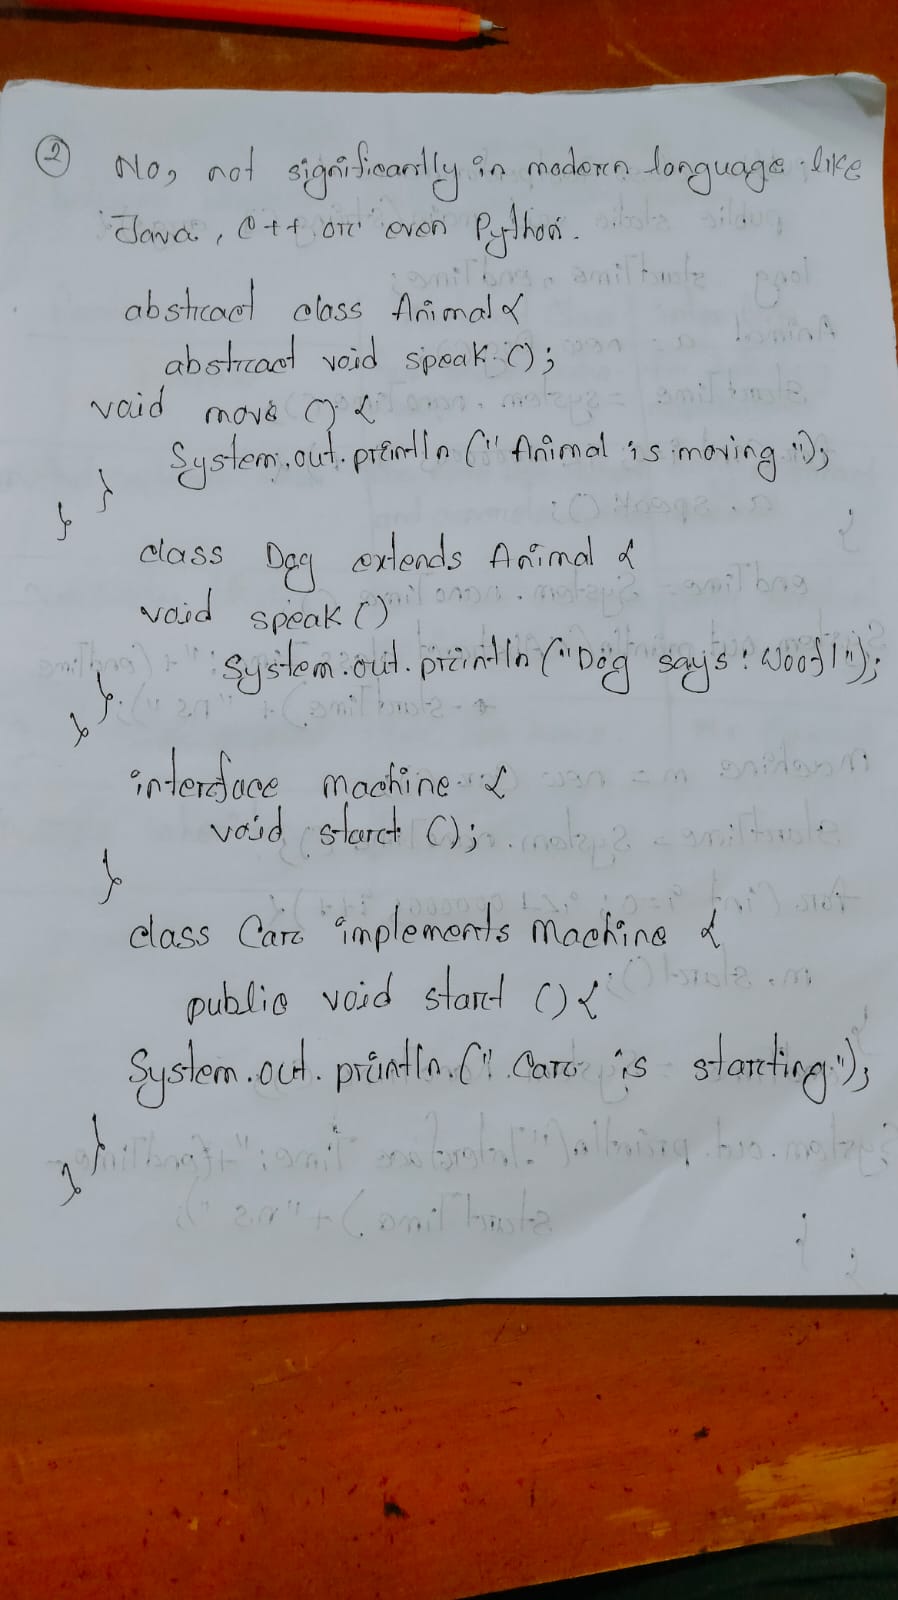 2 No, not significantly in modern language like
Java, C++ or even Python.
abstract class Animal {
abstract void speak ();
void move () {
System.out.println (" Animal is moving ");
}
}
class Dog extends Animal {
void speak ()
System.out.println ("Dog says: Woof!");
}
}
interface Machine {
void start ();
}
class Car implements Machine {
public void start () {
System.out.println (" Car is starting ");
}
}